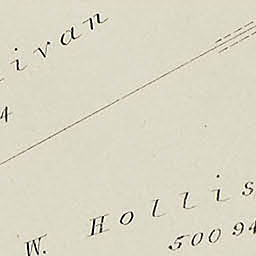 ivan
4
W. Hollis
500 94